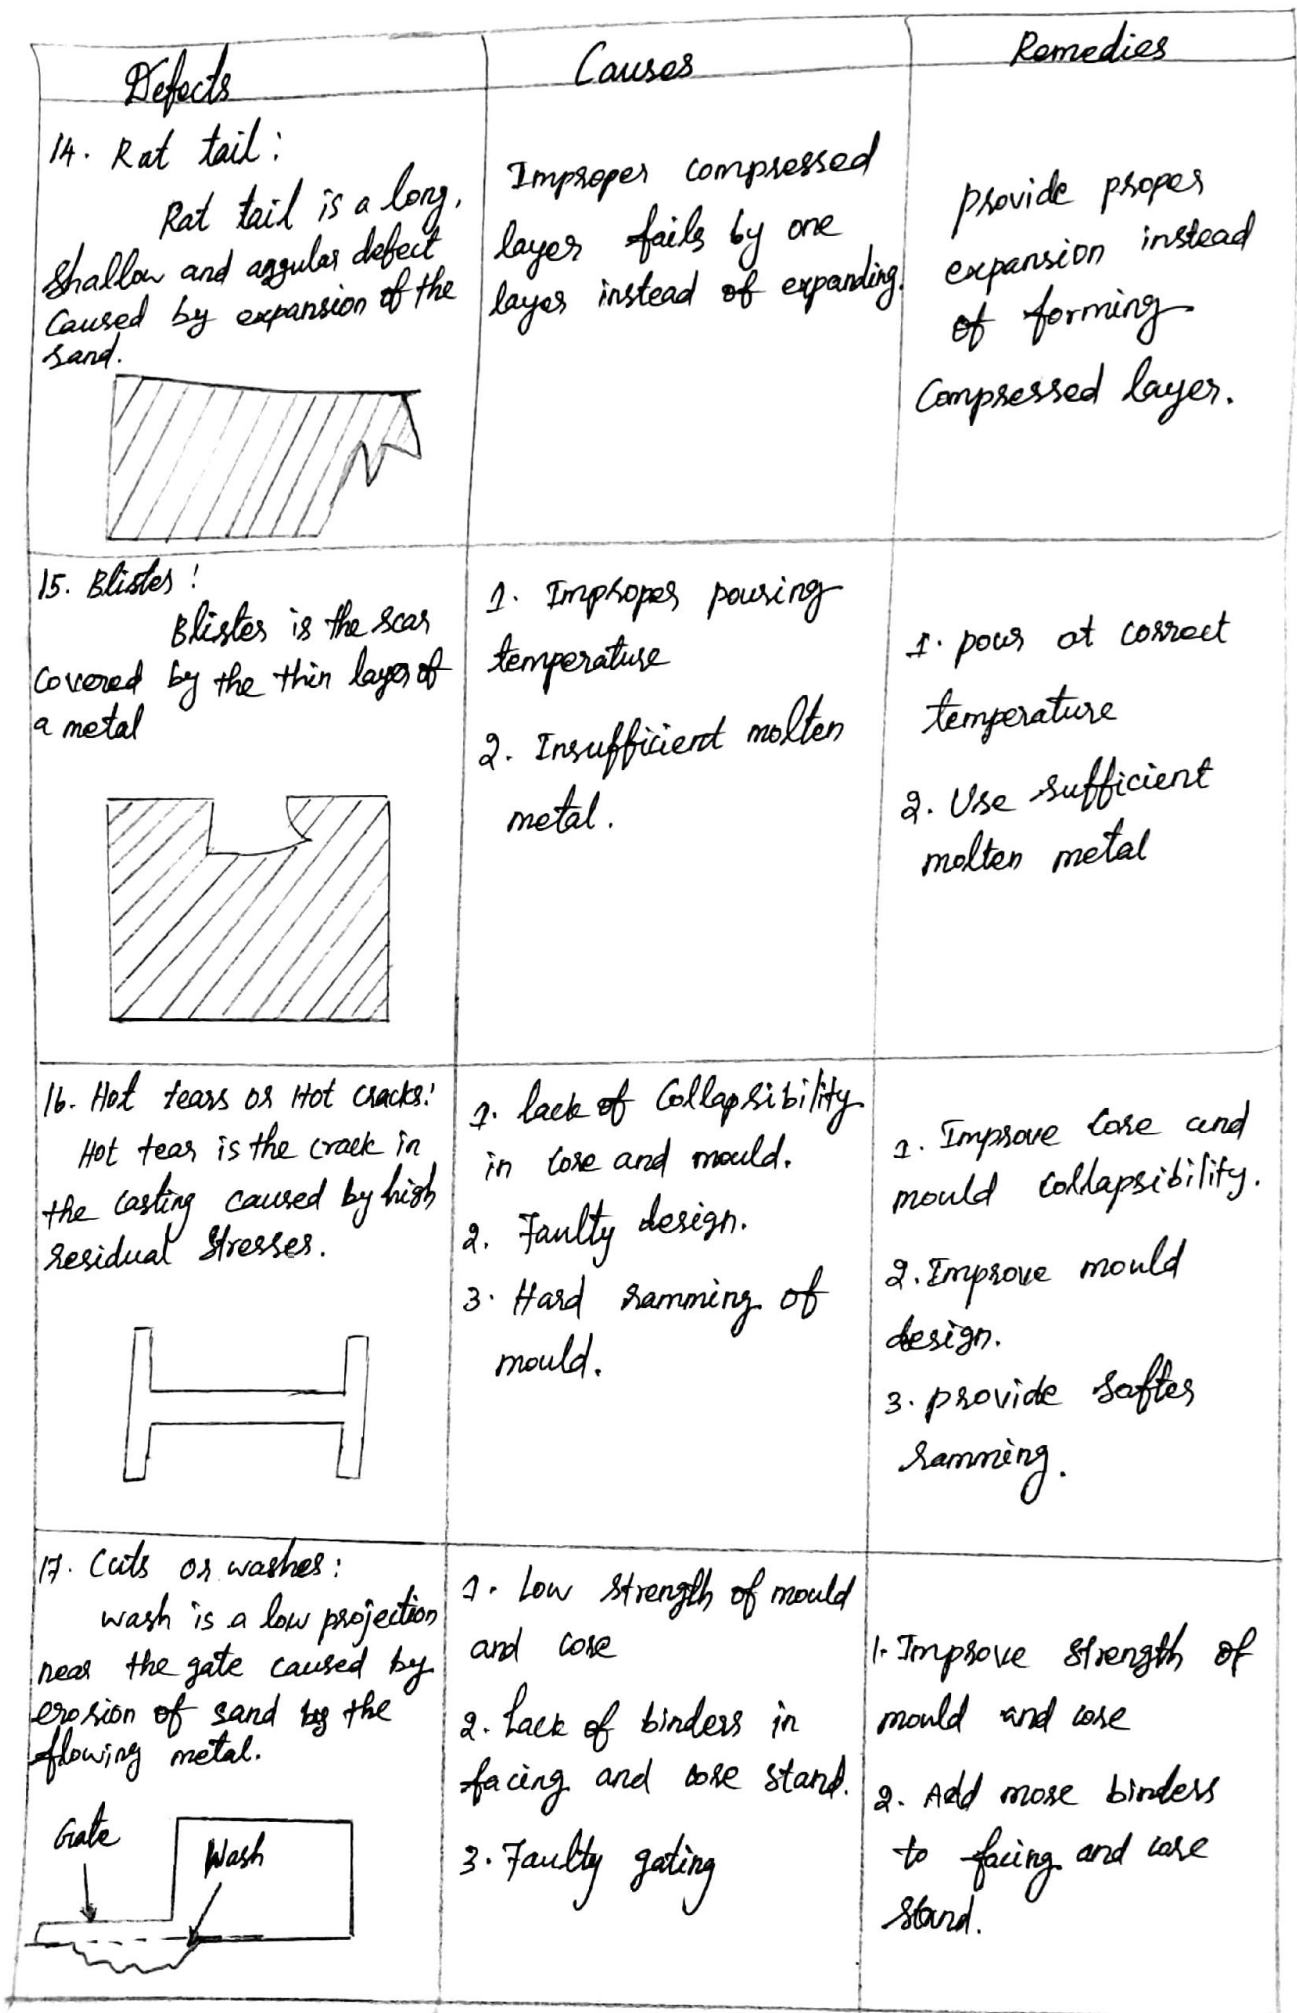 Defects
Causes
Remedies
14. Rat tail:
Rat tail is a long,
shallow and angular defect
Caused by expansion of the
sand.
Improper compressed
layer fails by one
layer instead of expanding.
provide proper
expansion instead
of forming
Compressed layer.
15. Blister:
Blister is the scar
covered by the thin layer of
a metal
1. Improper pouring
temperature
2. Insufficient molten
metal.
1. pour at correct
temperature
2. Use sufficient
molten metal
16. Hot tears or Hot cracks:
Hot tear is the crack in
the casting caused by high
residual stresses.
1. lack of Collapsibility
in core and mould.
2. Faulty design.
3. Hard ramming of
mould.
1. Improve core and
mould collapsibility.
2. Improve mould
design.
3. provide softer
ramming.
17. Cuts or washes:
wash is a low projection
near the gate caused by
erosion of sand by the
flowing metal.
Gate
Wash
1. Low strength of mould
and core
2. Lack of binders in
facing and core stand.
3. Faulty gating
1. Improve strength of
mould and core
2. Add more binders
to facing and core
stand.